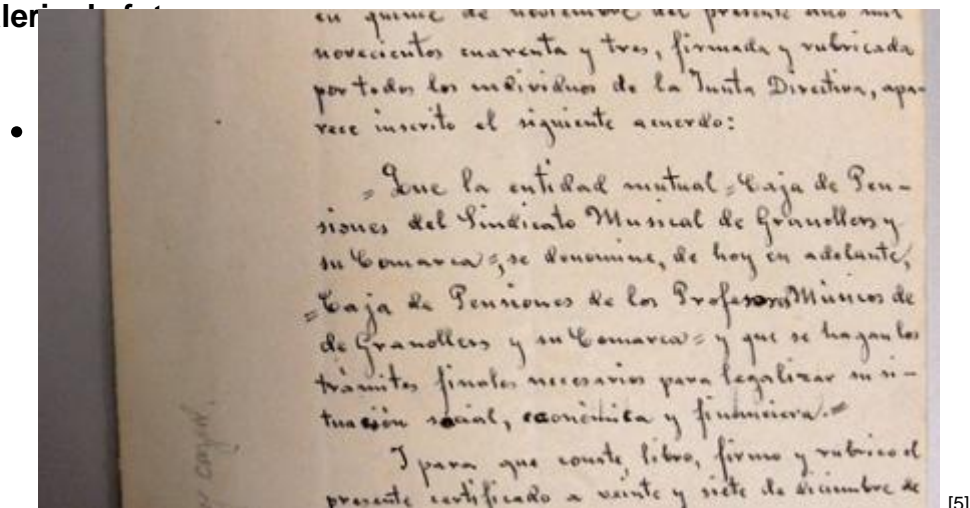 en quince de noviembre del presente año mil
novecientos cuarenta y tres, firmada y rubricada
por todos los individuos de la Junta Directiva, apa-
rece inscrito el siguiente acuerdo:
"Que la entidad mutual "Caja de Pen-
siones del Sindicato Musical de Granollers y
su Comarca", se denomine, de hoy en adelante,
"Caja de Pensiones de los Profesores Músicos de
de Granollers y su Comarca" y que se hagan los
trámites finales necesarios para legalizar su si-
tuación social, económica y financiera."
I para que conste, libro, firmo y rubrico el
presente certificado a veinte y siete de diciembre de
[5]